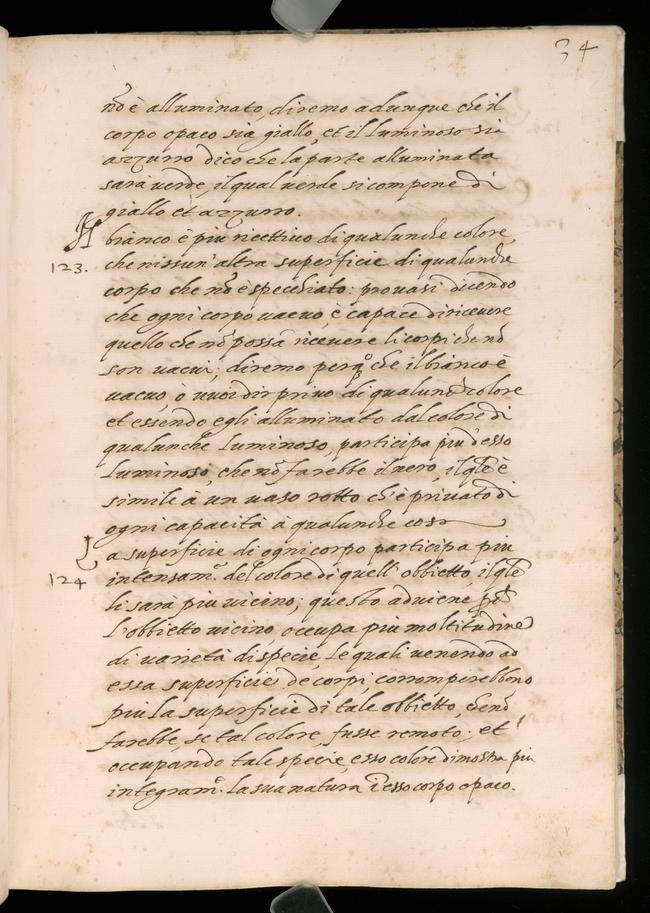 34
nõ è alluminato, diremo adunque che il
corpo opaco sia giallo, et il luminoso sia
azzurro dico che la parte alluminata
sarà verde, il qual verde si compone di
giallo et azzurro.
Il
bianco è piu ricettivo di qualunche colore,
123. che nissun'altra superficie di qualunche
corpo che nõ è specchiato: provasi dicendo
che ogni corpo vacuo, è capace di ricevere
quello che nõ possã ricevere li corpi che nõ
son vacui; diremo per q.o che il bianco è
vacuo, ò vuoi dir privo di qualunche colore
et essendo egli alluminato dal colore di
qualunche luminoso, participa piu d'esso
luminoso, che nõ farebbe il nero, il qle è
simile à un vaso rotto ch'è privato di
ogni capacità à qualunche cosa
La superficie di ogni corpo participa piu
124 intensam.e del colore di quell'obbietto, il qle
li sarà piu vicino; questo adviene pche
l'obbietto vicino occupa piu moltitudine
di varietà di specie, le quali venendo ad
essa superficie de corpi corromperebbono
piu la superficie di tale obbietto, che nõ
farebbe, se tal colore, fusse remoto: et
occupando tale specie, esso colore dimostra piu
integram.e la sua natura ĩ esso corpo opaco.